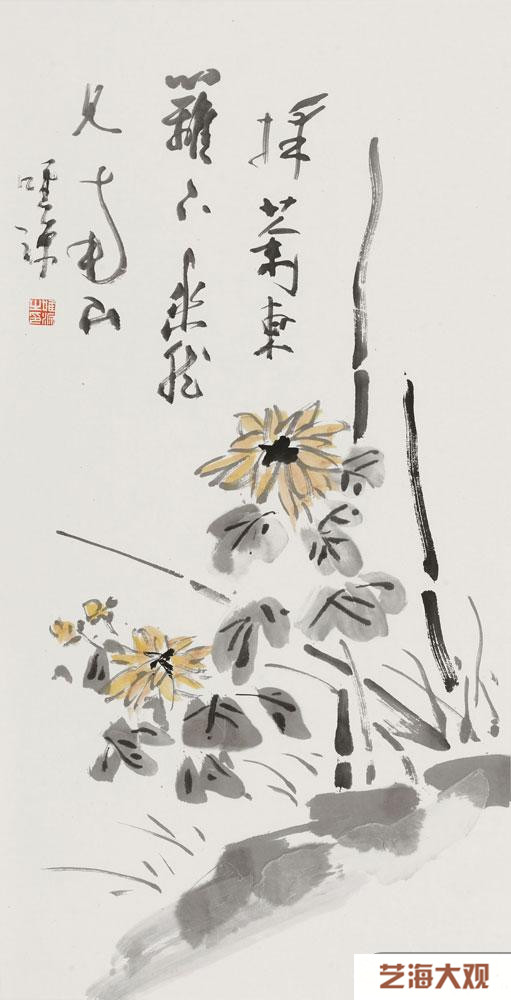 採菊東
籬下悠然
見南山
艺海大观